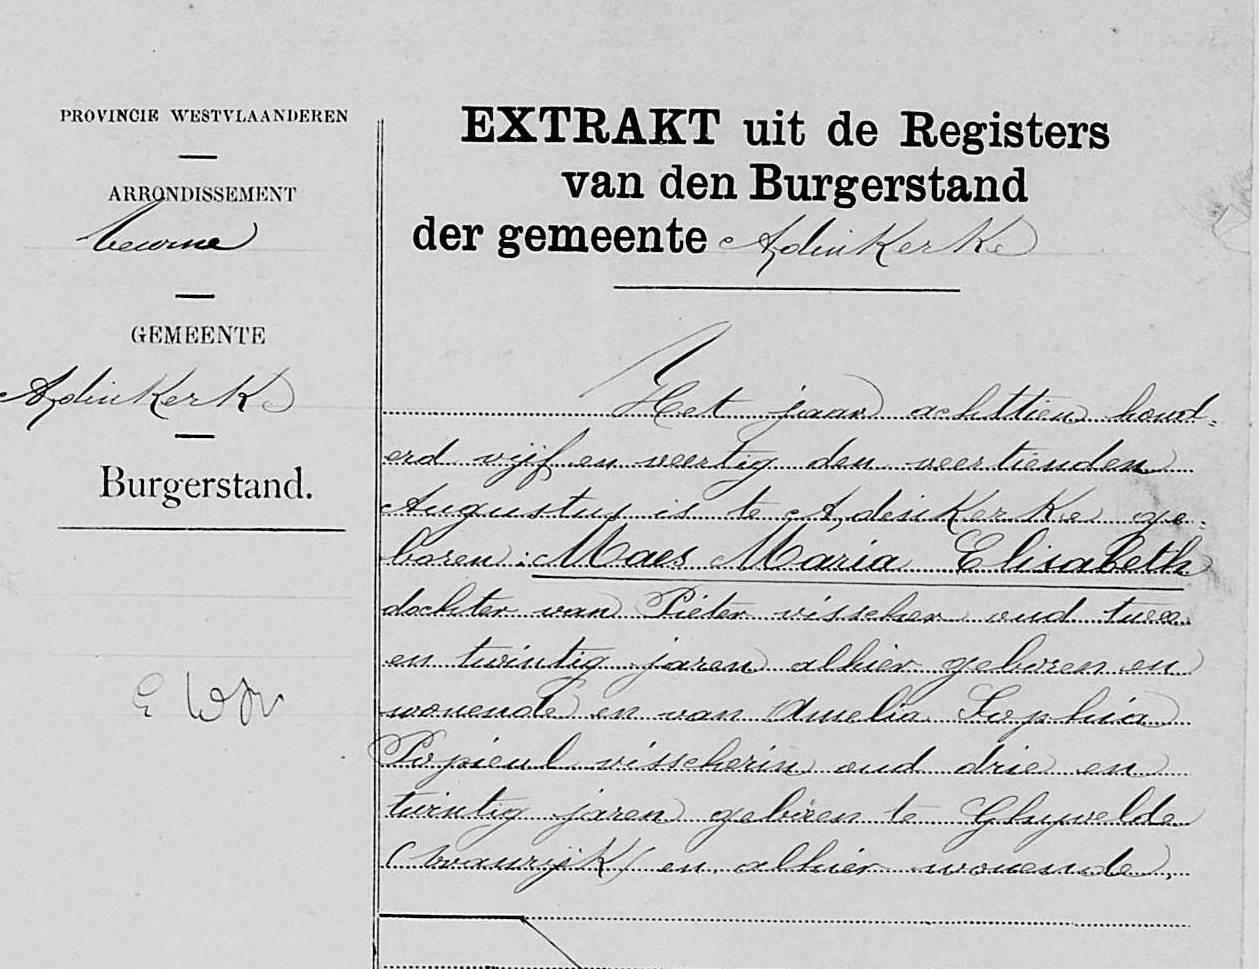 PROVINCIE WESTVLAANDEREN
ARRONDISSEMENT
Veurne
GEMEENTE
Adinkerke
Burgerstand.
EXTRAKT uit de Registers
van den Burgerstand
der gemeente Adinkerke
Het jaar achttien hond-
erd vijf en veertig den veertienden
Augustus is te Adinkerke ge-
boren: Maes Maria Elisabeth
dochter van Pieter visscher oud twee
en twintig jaren alhier geboren en
wonende en van Amelia Sophia
Popieul visscherin oud drie en
twintig jaren geboren te Ghyvelde
(Vrankrijk) en alhier wonende,